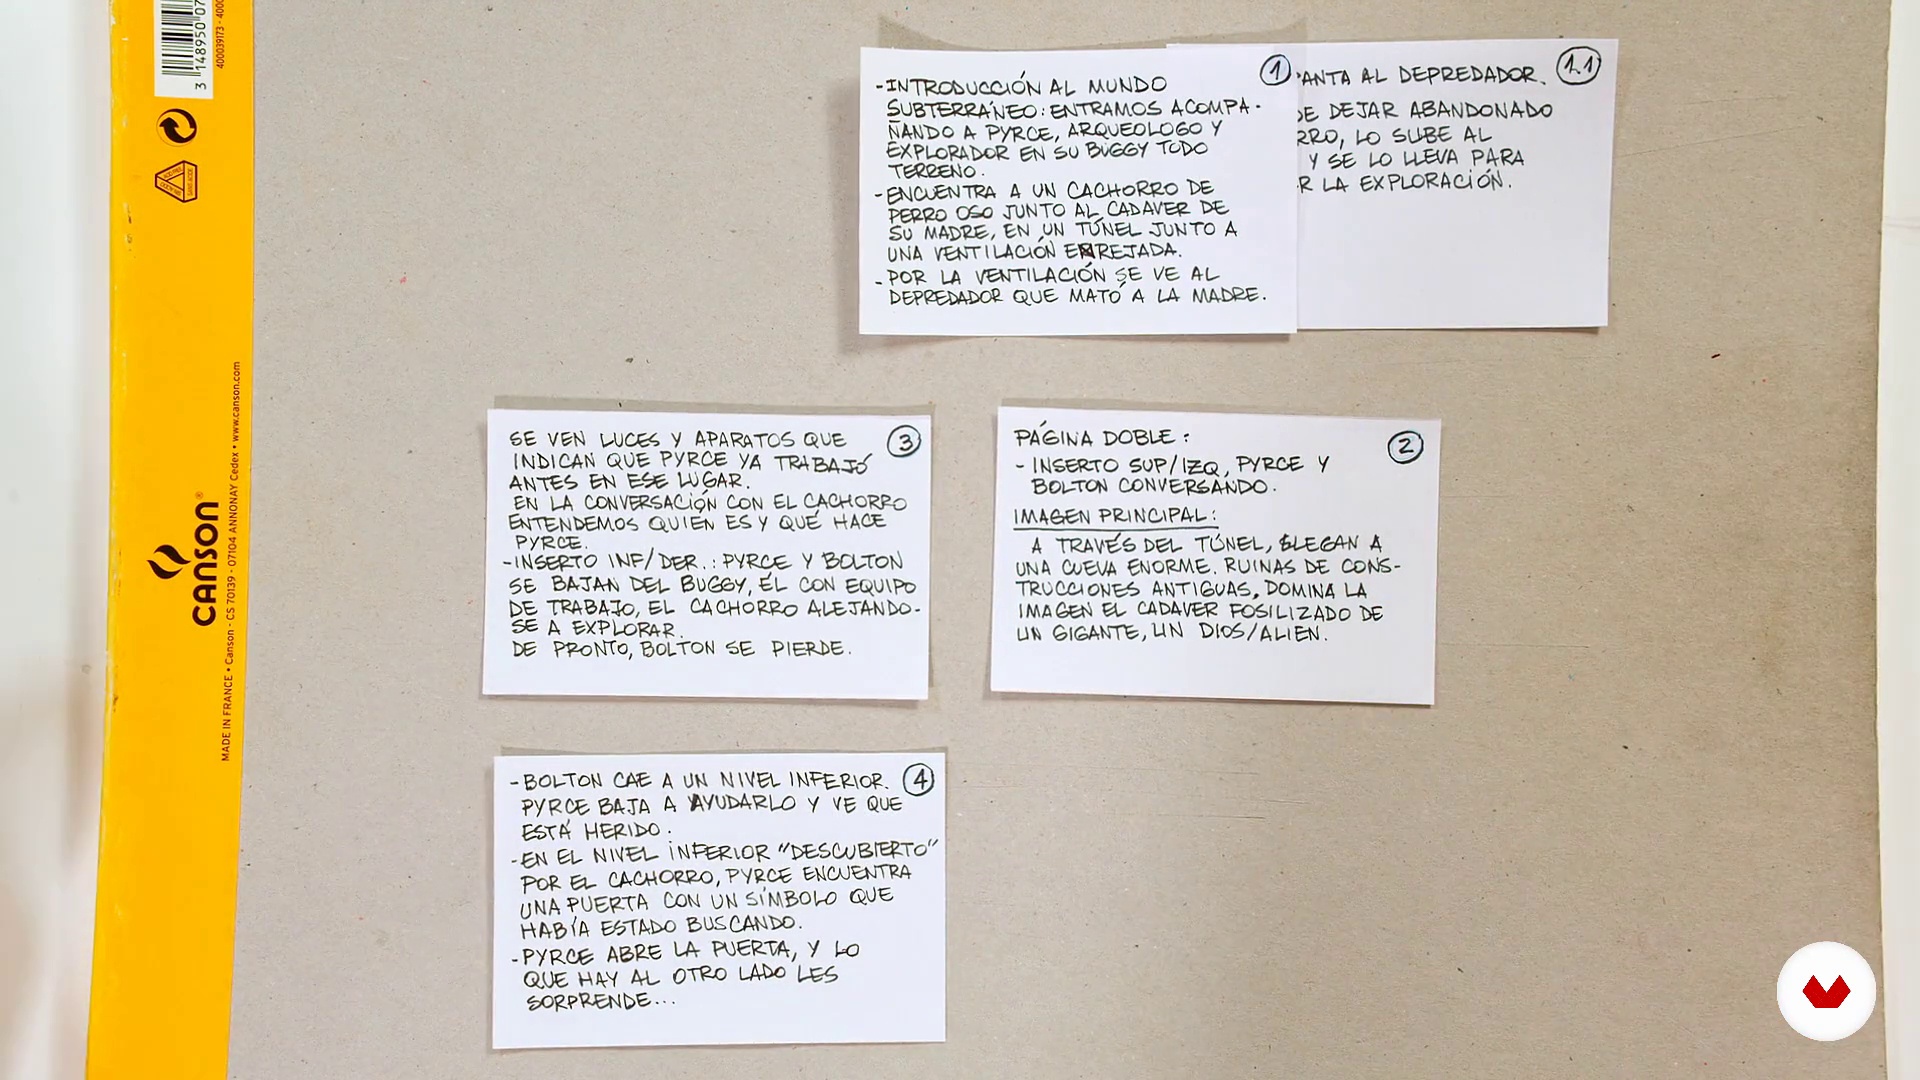 -INTRODUCCIÓN AL MUNDO
SUBTERRÁNEO: ENTRAMOS ACOMPA-
ÑANDO A PYRCE, ARQUEOLOGO Y
EXPLORADOR EN SU BUGGY TODO
TERRENO.
-ENCUENTRA A UN CACHORRO DE
PERRO OSO JUNTO AL CADAVER DE
SU MADRE, EN UN TÚNEL JUNTO A
UNA VENTILACIÓN ENREJADA.
-POR LA VENTILACIÓN SE VE AL
DEPREDADOR QUE MATÓ A LA MADRE.
1
ANTA AL DEPREDADOR.
DE DEJAR ABANDONADO
RRO, LO SUBE AL
Y SE LO LLEVA PARA
R LA EXPLORACIÓN.
1.1
PÁGINA DOBLE:
- INSERTO SUP/IZQ, PYRCE Y
BOLTON CONVERSANDO.
IMAGEN PRINCIPAL:
A TRAVÉS DEL TÚNEL, LLEGAN A
UNA CUEVA ENORME. RUINAS DE CONS-
TRUCCIONES ANTIGUAS, DOMINA LA
IMAGEN EL CADAVER FOSILIZADO DE
UN GIGANTE, UN DIOS/ALIEN.
2
SE VEN LUCES Y APARATOS QUE
INDICAN QUE PYRCE YA TRABAJÓ
ANTES EN ESE LUGAR.
EN LA CONVERSACIÓN CON EL CACHORRO
ENTENDEMOS QUIEN ES Y QUÉ HACE
PYRCE.
-INSERTO INF/DER.: PYRCE Y BOLTON
SE BAJAN DEL BUGGY, ÉL CON EQUIPO
DE TRABAJO, EL CACHORRO ALEJANDO-
SE A EXPLORAR.
DE PRONTO, BOLTON SE PIERDE.
3
-BOLTON CAE A UN NIVEL INFERIOR.
PYRCE BAJA A AYUDARLO Y VE QUE
ESTÁ HERIDO.
-EN EL NIVEL INFERIOR "DESCUBIERTO"
POR EL CACHORRO, PYRCE ENCUENTRA
UNA PUERTA CON UN SÍMBOLO QUE
HABÍA ESTADO BUSCANDO.
-PYRCE ABRE LA PUERTA, Y LO
QUE HAY AL OTRO LADO LES
SORPRENDE...
4
CANSON®
MADE IN FRANCE • Canson - CS 70139 - 07104 ANNONAY Cedex • www.canson.com
3 148950 07
400039173 - 400